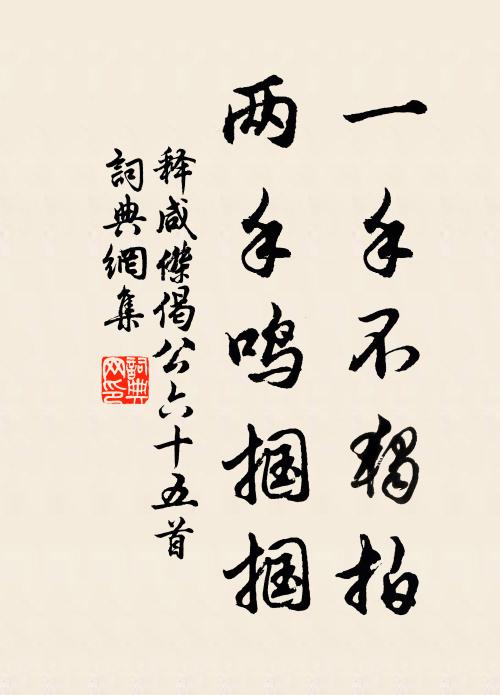 一手不獨拍
两手鸣掴掴
释咸傑偈公六十五首
詞典網集
詞典网印